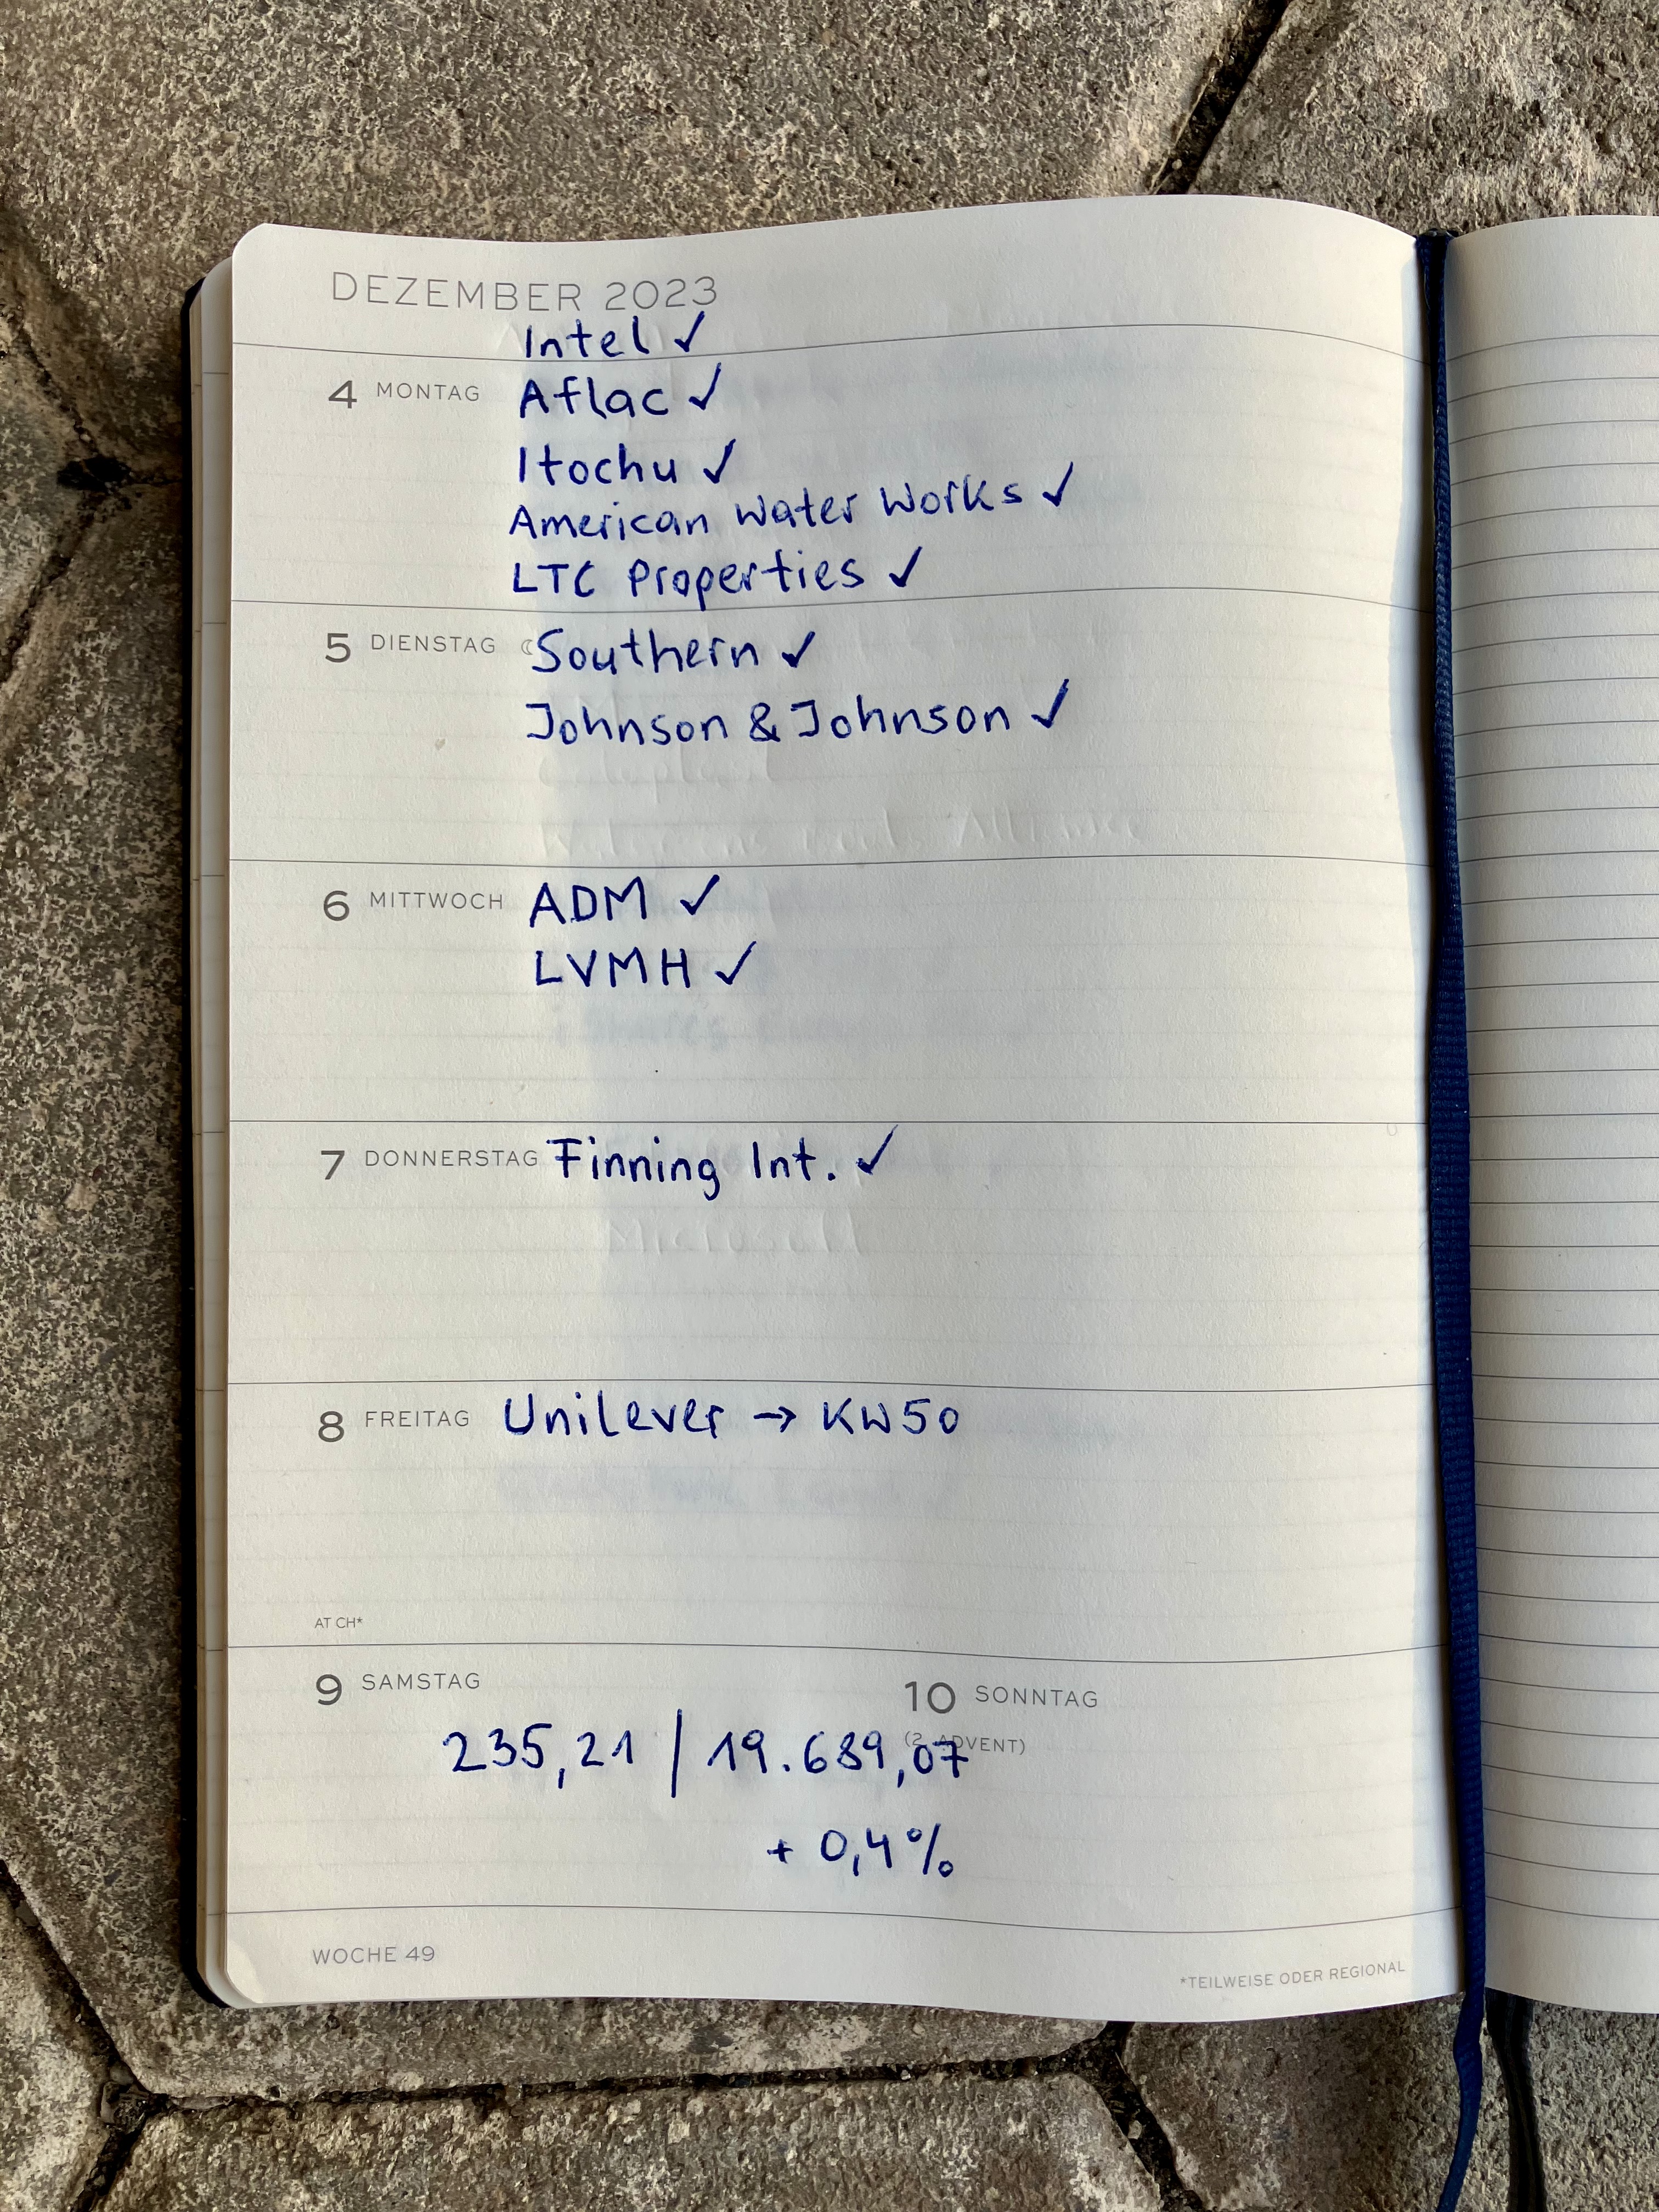 DEZEMBER 2023
Intel ✓
4 MONTAG Aflac ✓
Itochu ✓
American Water Works ✓
LTC Properties ✓
5 DIENSTAG ☾ Southern ✓
Johnson & Johnson ✓
6 MITTWOCH ADM ✓
LVMH ✓
7 DONNERSTAG Finning Int. ✓
Microsoft
8 FREITAG Unilever → KW50
AT CH*
9 SAMSTAG
10 SONNTAG
(2. ADVENT)
235,21 / 19.689,07
+ 0,4%
WOCHE 49
*TEILWEISE ODER REGIONAL